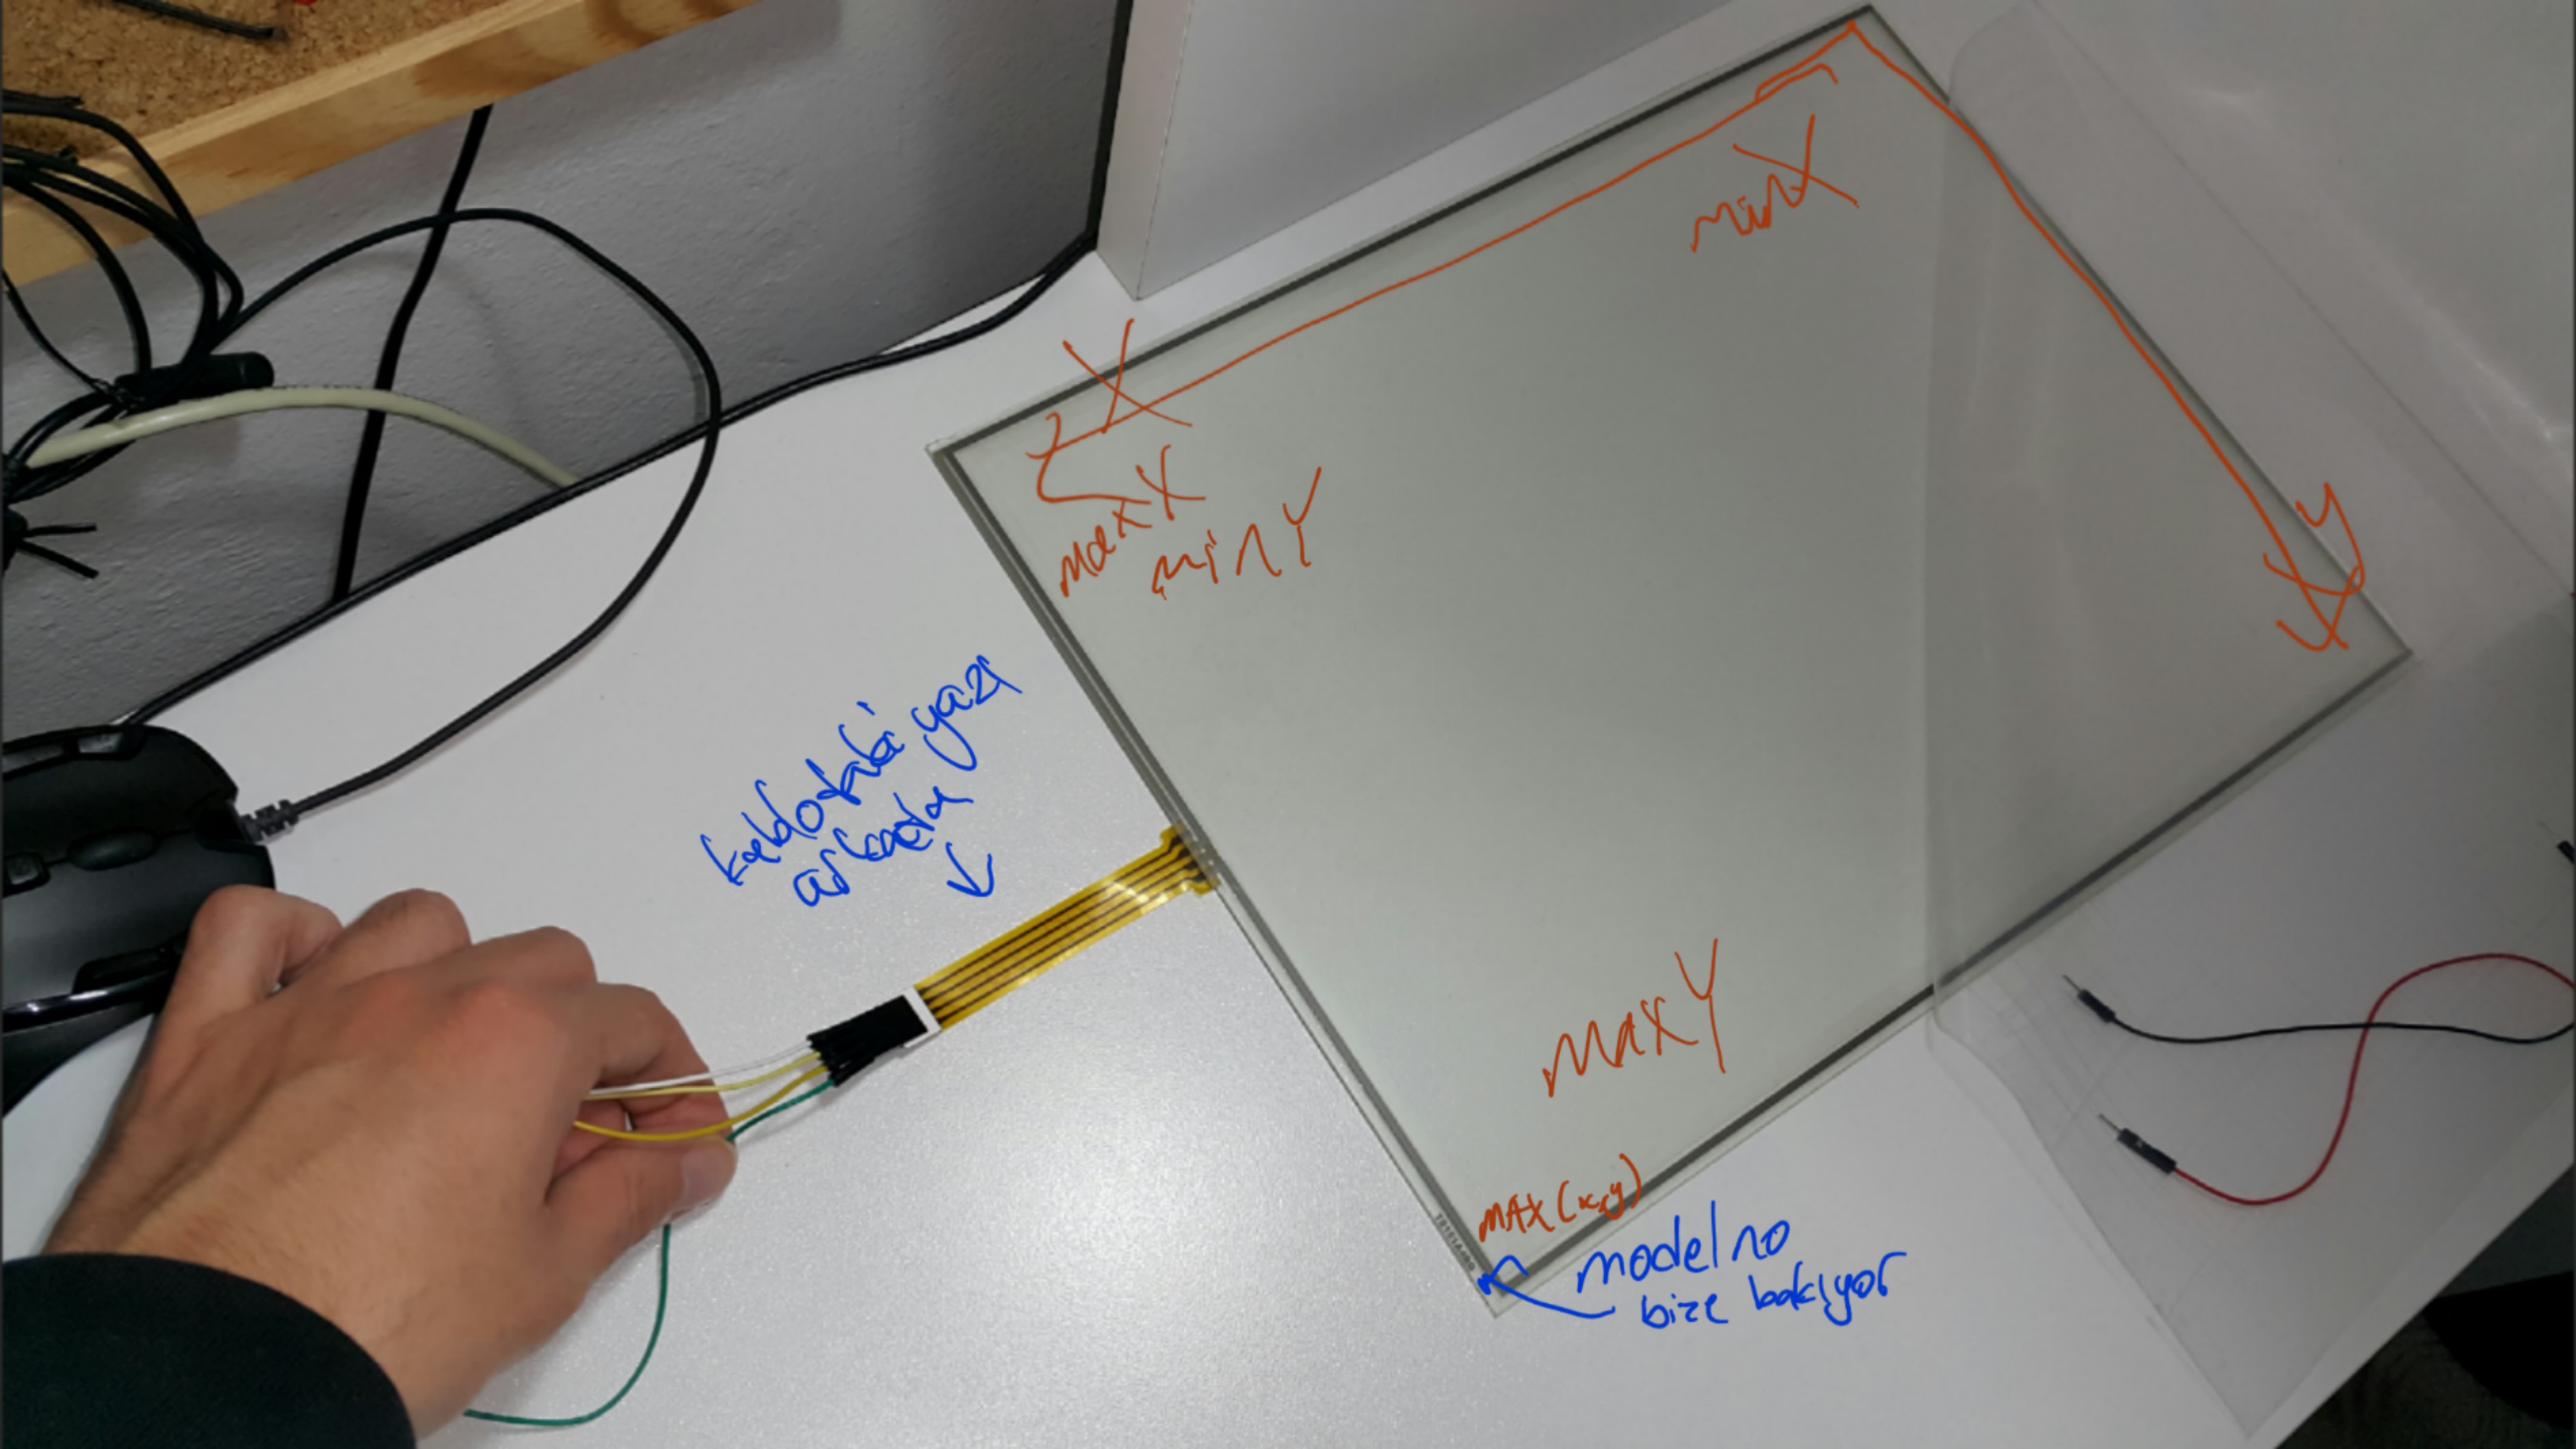 minX
X
maxX
minY
y
kablodaki yazı
arkada
maxY
MAX(x,y)
model no
bize bakıyor